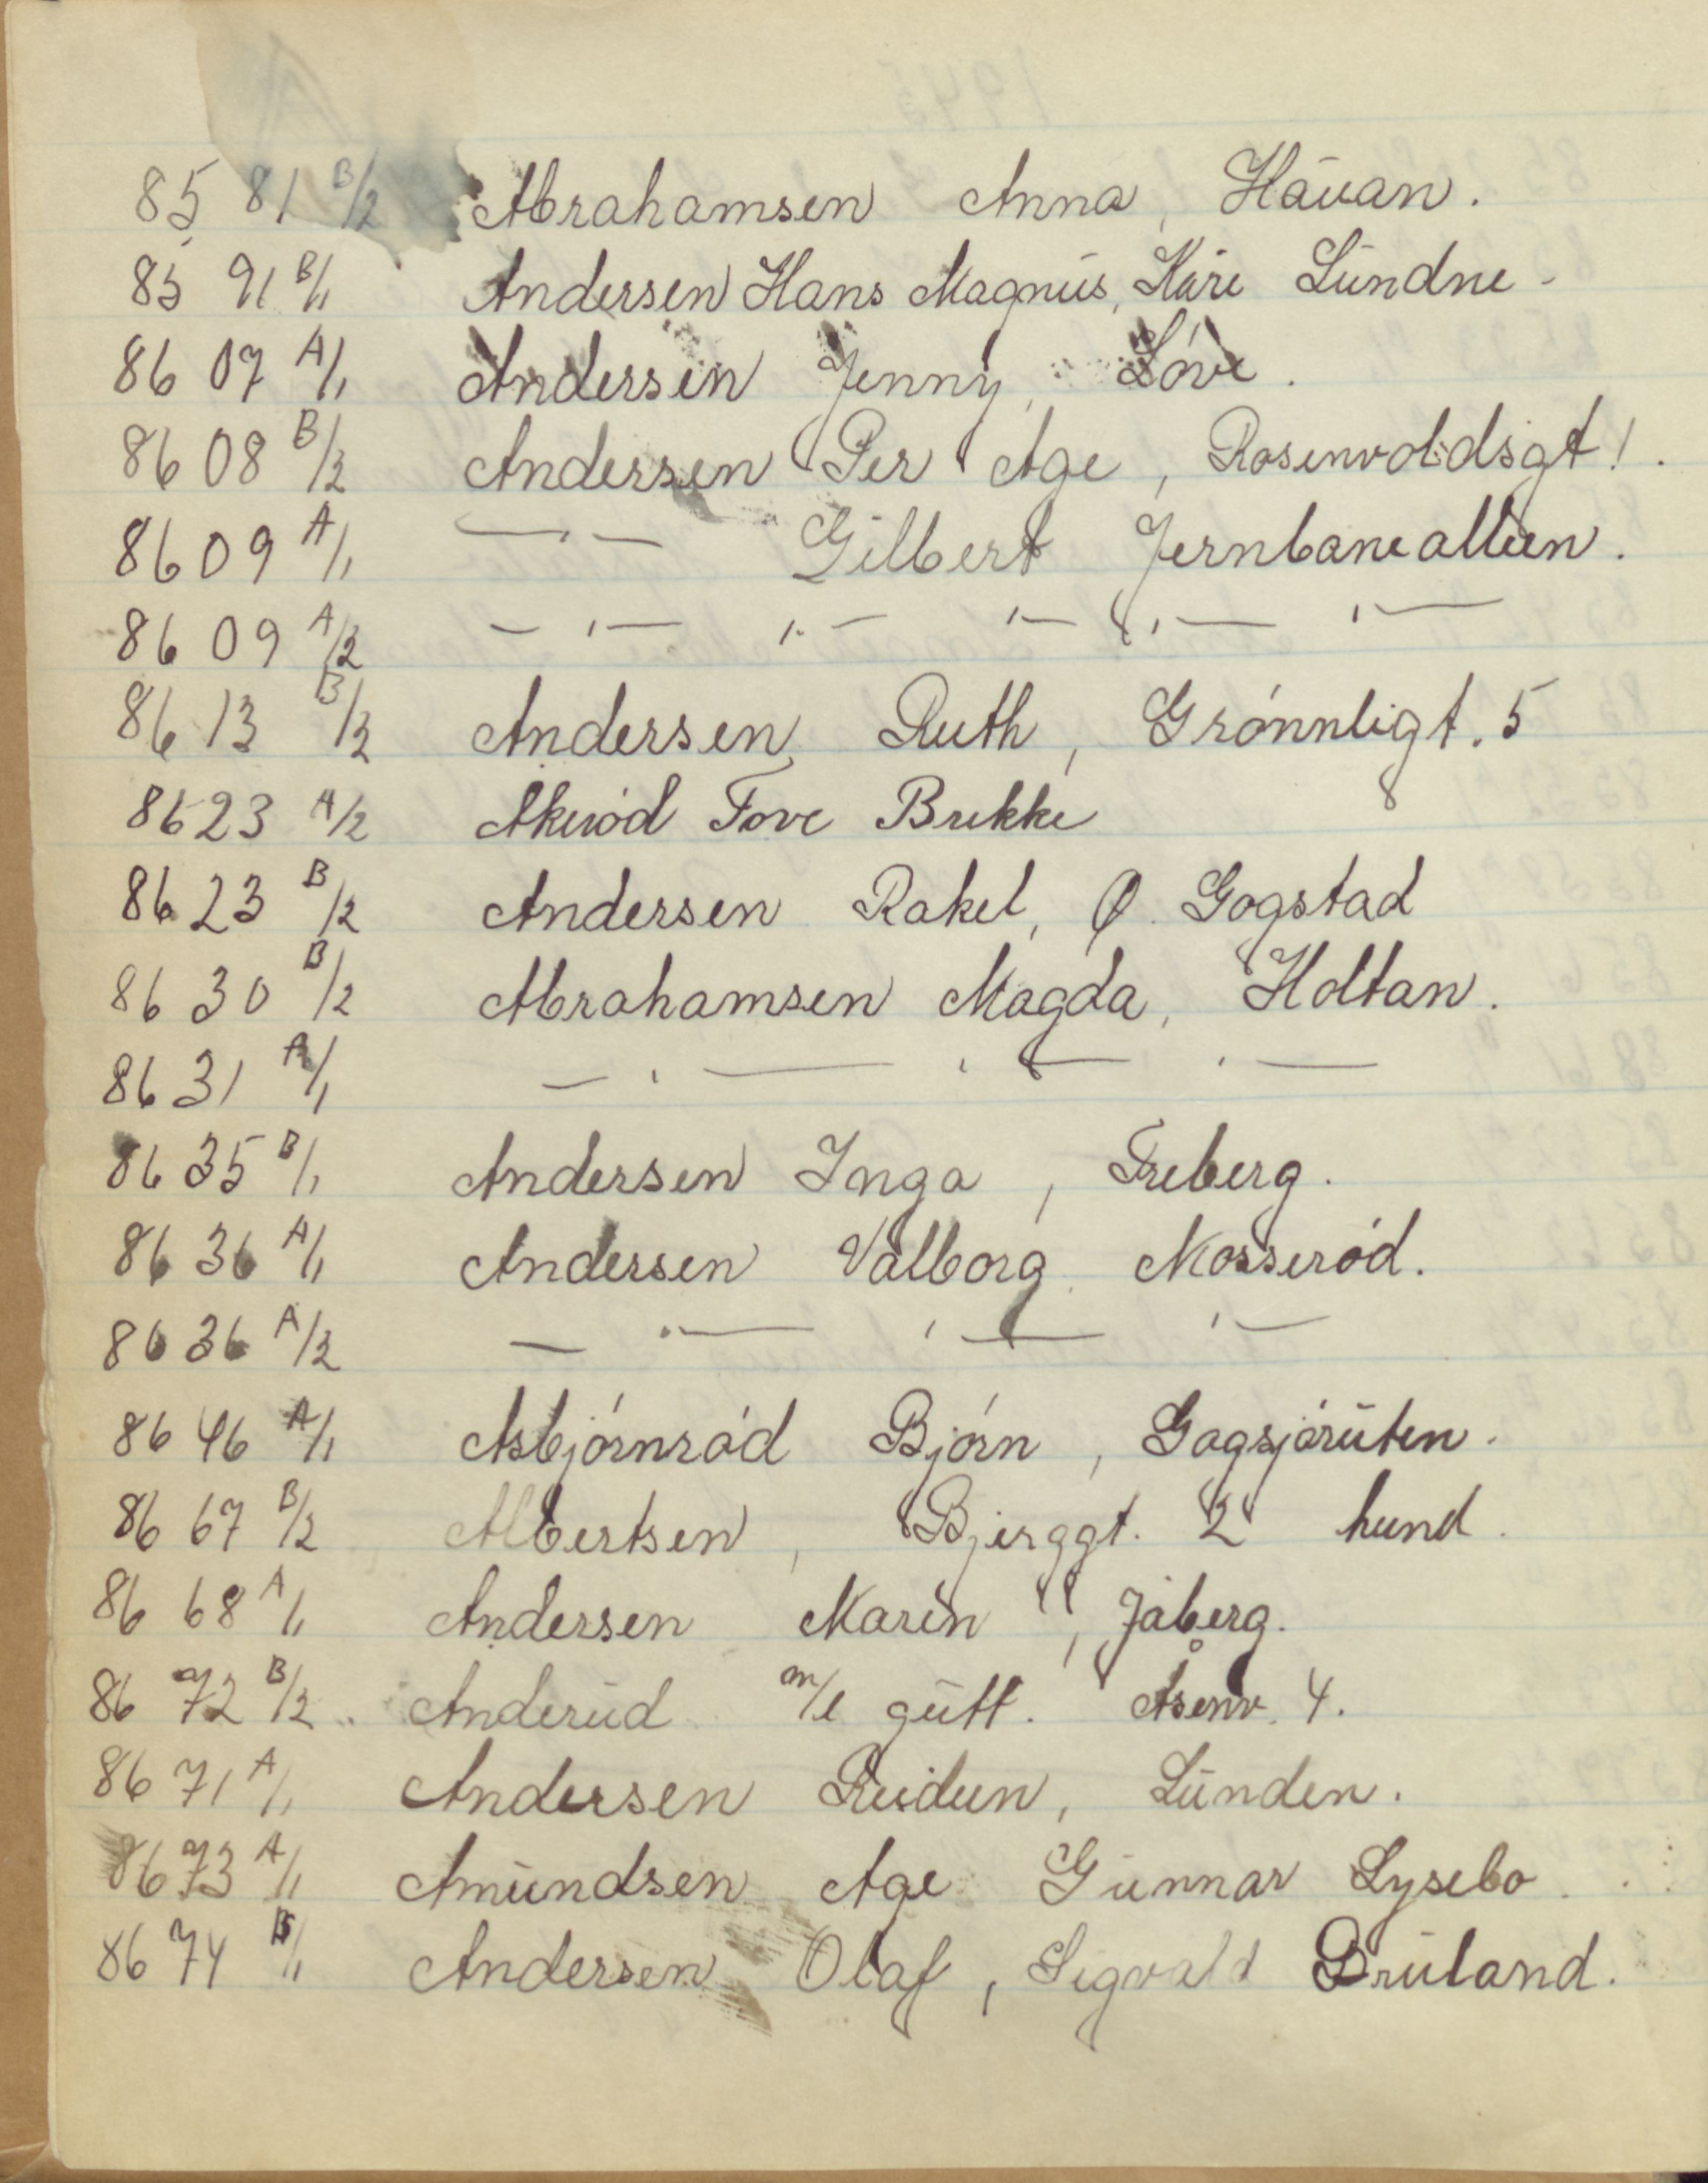 85 81 B/2 Abrahamsen Anna, Håvan.
85 91 B/1 Andersen Hans Magnus, Kåre Lundne -
86 07 A/1 Andersen Jenny, Löve.
86 08 B/2 Andersen Per Age, Rosenvoldsgt!.
86 09 A/1 —"— Gilbert Jernbancalleen.
86 09 A/2 —"— "— "— "— "—
86 13 B/2 Andersen Ruth, Grónnligt. 5
86 23 A/2 Akeród Tove Brekke
86 23 B/2 Andersen Rakel, Ø. Gogstad
86 30 B/2 Abrahamsen Magda, Holtan.
86 31 A/1 — " — " — " —
86 35 B/1 Andersen Inga, Freberg.
86 36 A/1 Andersen Valborg, Mosseród.
86 36 A/2 — " — " — " —
86 46 A/1 Asbjórnród Bjórn, Gogsjóruten.
86 67 B/2 Albertsen, Bjerggt. 2 hund.
86 68 A/1 Andersen Marin, Jåberg.
86 72 B/2 Anderud m/l gutt. Åsenv. 4.
86 71 A/1 Andersen Reidun, Lunden.
86 73 A/1 Amundsen Age Gunnar Lysebo.
86 74 B/1 Andersen Olaf, Sigvald Bruland.